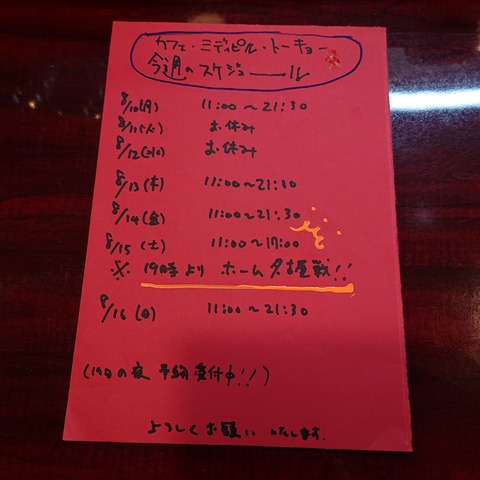 カフェ・ミディピル・トーキョー
今週のスケジュール
8/10(月) 11:00〜21:30
8/11(火) お休み
8/12(水) お休み
8/13(木) 11:00〜21:30
8/14(金) 11:00〜21:30
8/15(土) 11:00〜17:00
※ 19時より ホーム名古屋戦!!
8/16(日) 11:00〜21:30
(19日の夜 予約受付中!!)
よろしくお願いいたします.